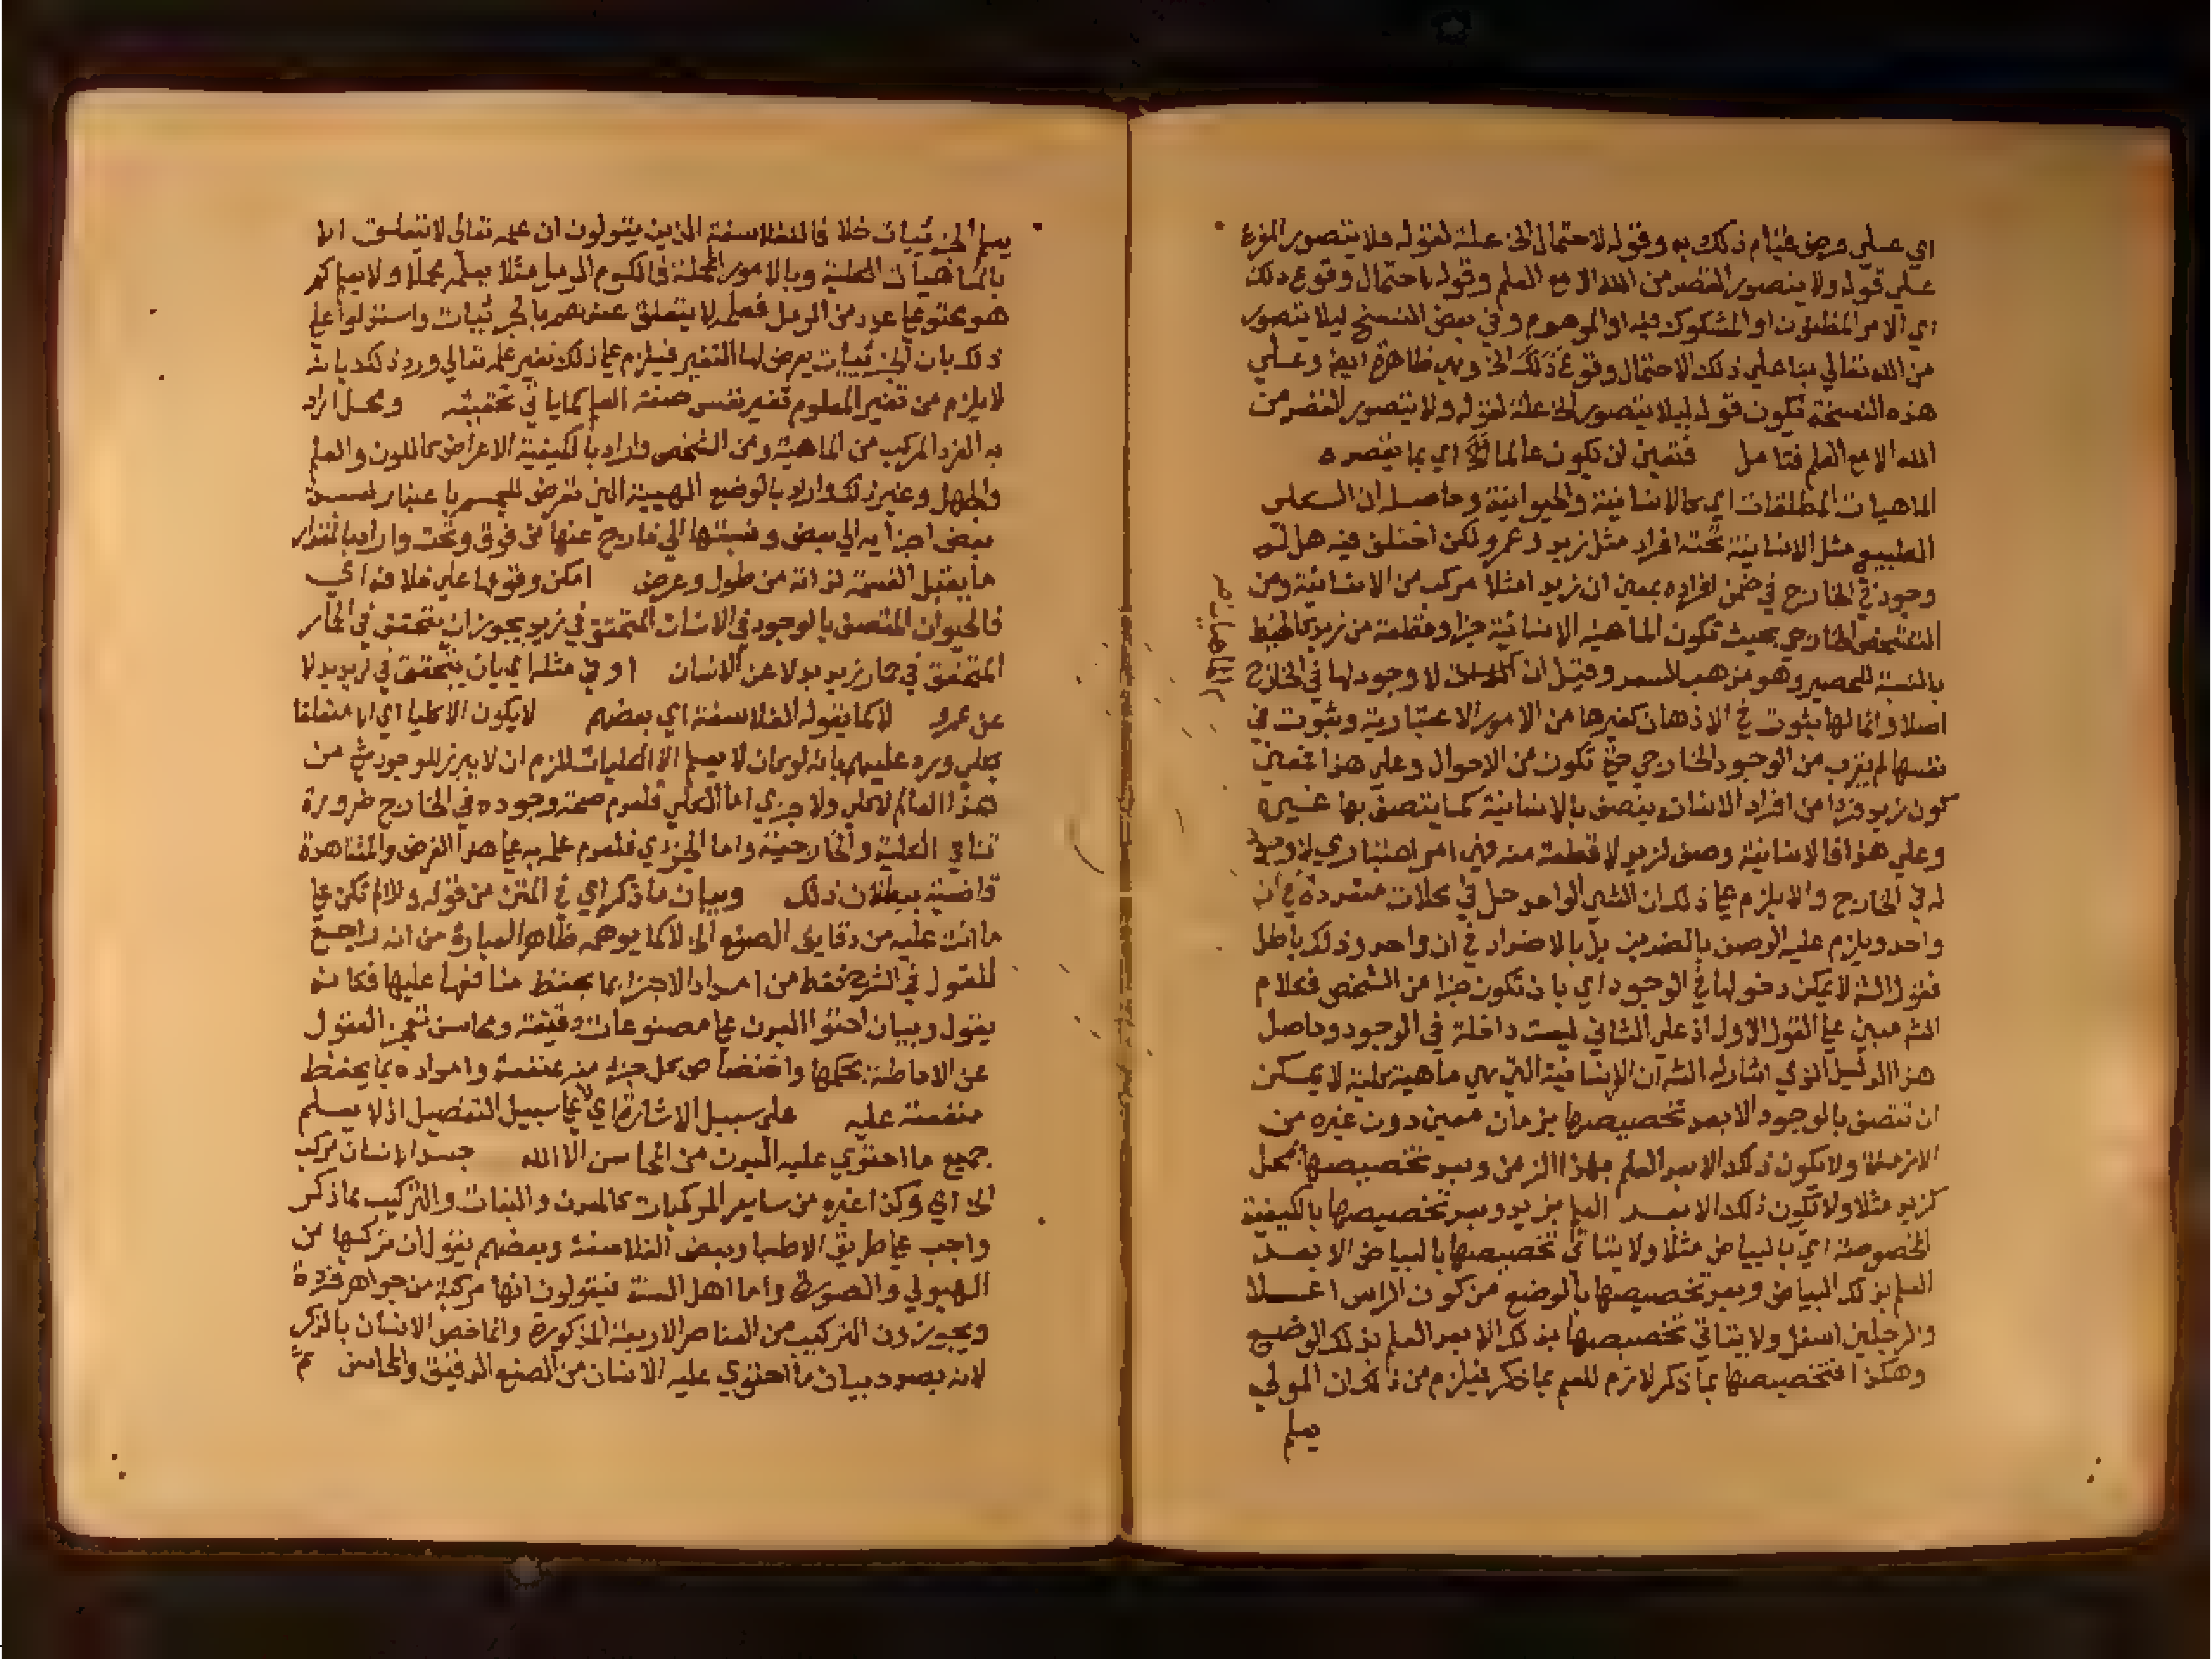 اي علي فرض قيام ذلك به وقوله لاحتمال الخ علة لقوله فلا يتصور الخ
علي قوله ولا يتصور القصد من الله الا مع العلم وقوله باحتمال وقوع ذلك
اي الامر المظنون او المشكوك فيه او الموهوم وفي بعض النسخ ليلا يتصور
من الله تعالي بنا علي ذلك الاحتمال وقوع ذلك الخ وهي ظاهرة ايضا وعلي
هذه النسخة تكون قوله ليلا يتصور الخ علة لقوله ولا يتصور القصد من
الله الا مع العلم فتامل فتعين ان يكون عالما اي بما يقصده
الماهيات المطلقات اي كالانسانية والحيوانية وحاصله ان الكلي
الطبيعي مثل الانسانية تحته افراد مثل زيد وعمرو لكن اختلف فيه هل له
وجود في الخارج في ضمن افراده بمعني ان زيدا مثلا مركب من الانسانية ومن
التشخص الخارجي بحيث تكون الماهية الانسانية جزا وقطعة من زيد كالخيط
بالنسبة للحصير وهو مذهب السعد وقيل ان لا وجود لها في الخارج
الماهيات
اصلا وانما لها ثبوت في الاذهان كغيرها من الامور الاعتبارية وثبوت في
نفسها لم يقرب من الوجود الخارجي حتي تكون من الاحوال وعلي هذا فمعني
كون زيد فردا من افراد الانسان يتصف بالانسانية كما يتصف بها غيره
وعلي هذا فالانسانية وصف لزيد لا قطعة منه فهي امر اعتباري لا وجود
له في الخارج والا يلزم علي ذلك ان الشي الواحد حل في محلات متعددة في ان
واحد ويلزم عليه الوصف بالضدين بل بالاضداد في ان واحد وذلك باطل
فقول الشه لا يمكن دخولها في الوجود اي بان تكون جزا من الشخص فكلام
الشه مبني علي القول الاول اذ علي الثاني ليست داخلة في الوجود وحاصل
هذا الدليل الذي اشار له الشه ان الانسانية التي هي ماهية كلية لا يمكن
ان تتصف بالوجود الا بعد تخصيصها بزمان معين دون غيره من
الازمنة ولا يكون ذلك الا بعد العلم بهذا الزمن وبعد تخصيصها بمحل
كزيد مثلا ولا تكون ذلك الا بعد العلم بزيد وبعد تخصيصها بالكيفية
المخصوصة اي بالبياض مثلا ولا يتاتي تخصيصها بالبياض الا بعد
العلم بذلك البياض وبعد تخصيصها بالوضع من كون الراس اعلا
والرجلين اسفل ولا يتاتي تخصيصها بذلك الا بعد العلم بذلك الوضع
وهكذا فتخصيصها بما ذكر لازم للعلم بما ذكر فيلزم من ذلك ان المولي
يعلم
يعلم الجزئيات خلافا للفلاسفة الذين يقولون ان علمه تعالي لا يتعلق الا
بالماهيات الكلية وبالامور المجملة فالكوم الرمل مثلا يعلمه مجملا ولا يعلم كم
هو محتو علي عدد من الرمل فعلمه لا يتعلق عندهم بالجزئيات واستدلوا علي
ذلك بان الجزئيات يعرض لها التغير فيلزم علي ذلك تغير علمه تعالي ورد ذلك بانه
لا يلزم من تغير المعلوم تغير نفس صفة العلم كما ياتي تحقيقه ومحل اراد
به الفرد المركب من الماهية ومن التشخص واراد بالكيفية الاعراض كاللون والعلم
والجهل وغير ذلك واراد بالوضع الهيية التي تعرض للجسم باعتبار نسبة
بعض اجزايه الي بعض ونسبتها الي خارج عنها من فوق وتحت واراد بالمقدار
ما يقبل القسمة لذاته من طول وعرض امكن وقوعها علي خلافه اي
فالحيوان المتصف بالوجود في الانسان المتحقق في زيد يجوز ان يتحقق في الحمار
المتحقق في حمار زيد بدلا عن الانسان او في مثله اي بان يتحقق في زيد بدلا
عن عمرو لا كما يقوله الفلاسفة اي بعضهم لا يكون الا كليا اي الا متعلقا
بكلي ورد عليهم بانه لو كان لا يعلم الا الكليات للزم ان لا يبرز للوجود شي من
هذا العالم لا كلي ولا جزي اما الكلي فلعدم صحة وجوده في الخارج ضرورة
تنافي الكلية والخارجية واما الجزءي فلعدم علمه به علي هذا الفرض والمشاهدة
قاضية ببطلان ذلك وبيان ما ذكر اي في المتن من قوله والا لم تكن علي
ما انت عليه من دقايق الصنع الخ لا كما يوهمه ظاهر العبارة من انه راجع
للقول في الشرح فقط من امداد الاجزا بما يحفظ منافعها عليها فكانه
يقول وبيان احتوا البدن علي مصنوعات دقيقة ومحاسن تعجز العقول
عن الاحاطة بحكمها واختصاص كل جزء منه بمنفعة وامداده بما يحفظ
منفعته عليه علي سبيل الاشارة اي لا علي سبيل التفصيل اذ لا يعلم
جميع ما احتوي عليه البدن من المحاسن الا الله جسد الانسان مركب
الخ اي وكذا غيره من ساير المركبات كالمعدن والنبات والتركيب مما ذكر
واجب علي طريق الاطبا وبعض الفلاسفة وبعضهم يقول ان تركبها من
الهيولي والصورة واما اهل السنة فيقولون انها مركبة من جواهر فردة
ويجوزون التركيب من العناصر الاربعة المذكورة وانما خص الانسان بالذكر
لانه بصدد بيان ما احتوي عليه الانسان من الصنع الدقيق والمحاسن ثم